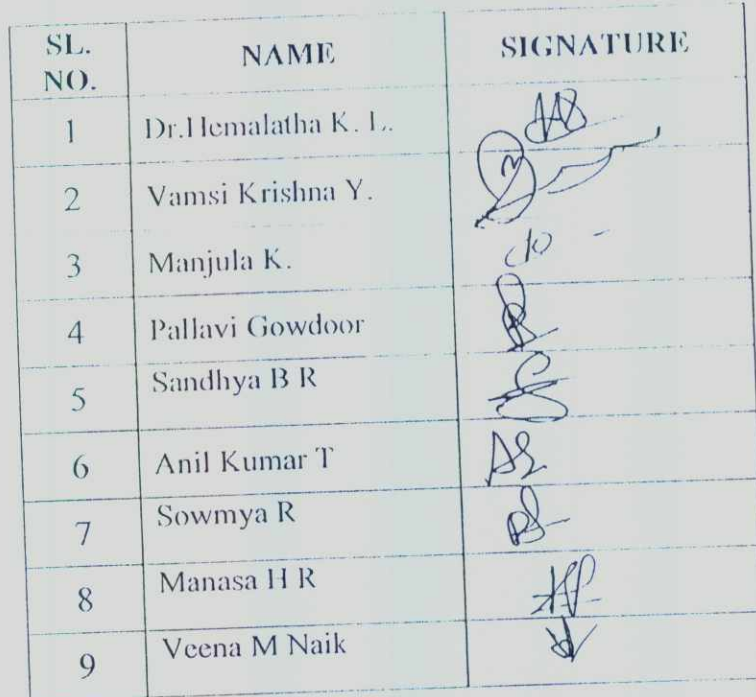 SL. NO. NAME SIGNATURE
1 Dr.Hemalatha K. L.
2 Vamsi Krishna Y.
3 Manjula K.
4 Pallavi Gowdoor
5 Sandhya B R
6 Anil Kumar T
7 Sowmya R
8 Manasa H R
9 Veena M Naik